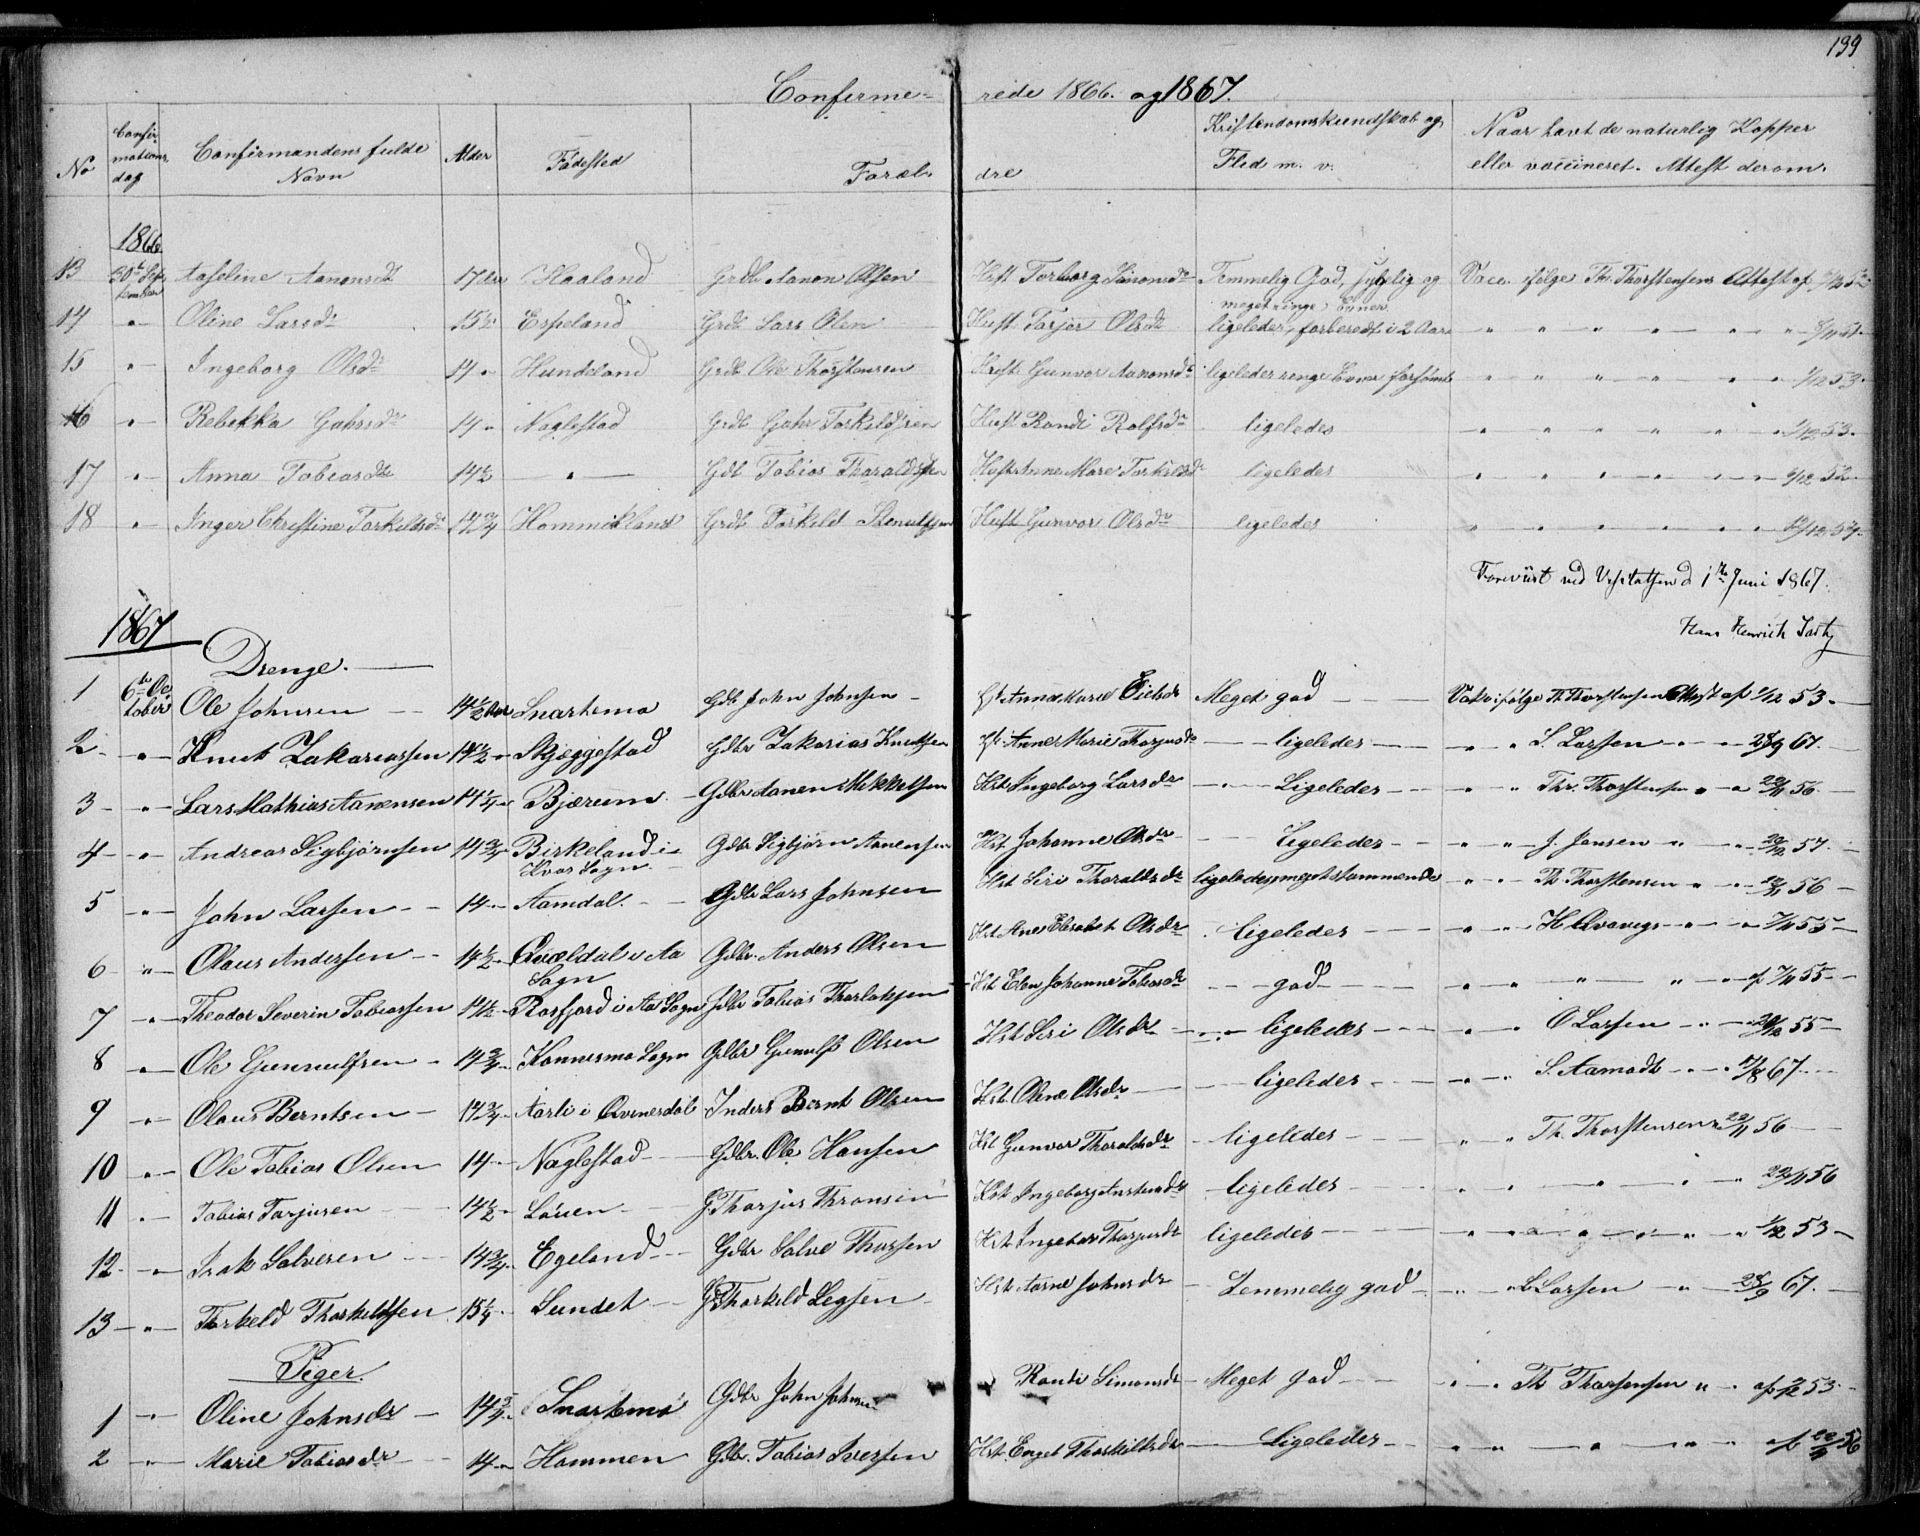 199
Confirme- rede 1866. og 1867.
No Confirmations dag Confirmandens fulde Navn Alder Födested Foræl- dre Kristendomskundskab og Flid m. v. Naar havt de naturlig Kopper eller vaccineret. Attest derom.
1866
13 30te September Aaseline Aanonsdt 17 Aar Haaland Grdb Aanon Olsen Hust Torborg Simonsdr Temmelig God, sydelig og meget ringe Evner Vacc. ifølge Th. Thorstensens Attest af
14 " Oline Larsdr 15½ Espeland Grdb Lars Olsen Hust. Tarjer Olsdr ligeledes, forberedt i 2 Aar " " " " " " 51.
15 " Ingeborg Olsdr 14 " Hundeland Grdb Ole Thorstensen Hust. Gunvor Aanonsdr ligeledes ringe Evner forsömt " " " " " " 1/12 53.
16 " Rebekka Gahrsdr 14 " Naglestad Grdb Gahr Torkildsen Hust Randi Rolfsdr ligeledes " " " " " " 1/12 53.
17 " Anna Tobiasdt 14½ " Gdb Tobias Tharaldsen Hust Anne Marie Torkildsdr ligeledes " " " " " " 6/12 52.
18 " Inger Christine Torkildsdr 14¾ Hommikland Grdb Torkild Stenulfsen Hust Gunvor Olsdr ligeledes " " " " " "
Forevüst ved Visitatsen d 1ste Juni 1867.
Hans Henrich
1867
Drenge.
1 6te October Ole Johnsen 14½ Aar Snartemo Gdb John Johnsen Anna Marie Eielsdr Meget god Vakc ifölge Th Thorstensen Attest af 1/12 53.
2 " Knut Zakariassen 14½ " Skjeggestad Gdbr Zakarias Knutsen Anne Marie Tharjusdr ligeledes " " S. Larssen " " 28/9 67.
3 " Lars Mathias Aanensen 14¼ " Bjærum Gdbr Aanen Mikkelsen Hst Ingeborg Larsdr Ligeledes " " Thr. Thorstensen " " 22/11 56
4 " Andreas Sigbjørnsen 14¾ Birkeland i Kvas Sogn Gdbr Sigbjörn Aanensen Hst Johanne Olsdr Ligeledes " " J. Jansen " " 57.
5 " John Larsen 14 " Aamdal Gdbr Lars Johnsen Hst Siri Tharaldsdr ligeledes meget stammende " " Th. Thorstensen " " 22/11 56
6 " Olaus Andersen 14½ Qvældal i Aa Sogn Gdbr. Anders Olsen Hst Ane Elisabet Olsdr ligeledes " " H. Qvavigs " 7/11 55
7 " Theodor Severin Tobiassen 14½ Rosfjord i Aa Sogn Gdbr Tobias Tharlaksen Hst Elen Johanne Tobiasdr god " " " " af 7/11 55
8 " Ole Gunnulfsen 14¾ Konnesmo Sogn Gdbr Gunulf Olsen Hst Siri Olsdr ligeledes " " O Larsen " 55
9 " Olaus Berntsen 14¾ Aarli i Qvinesdal Inders Bernt Olsen Hst. Oline Olsdr ligeledes " " S. Aamodt 67
10 " Ole Tobias Olsen 14 " Naglestad Gdbr. Ole Hansen Hst Gunvor Tharaldsdr ligeledes " " Th. Thorstensen " 22/11 56
11 " Tobias Tarjusen 14½ Löuen G Tharjus Thronsen Hst Ingeborg Anstensdr ligeledes " " " " " 22/11 56
12 " Isak Salvesen 14¾ Egeland Gdbr Salve Thorsen Hst Ingebor Tharjusdr ligeledes " " " " " 1/12 53
13 " Thorkeld Thorkeldsen 15¼ Sundet G Thorkeld Legsen Hst Aasne Johnsdr Temmelig god " " L Larsen " 28/9 67.
Piger.
1 " Oline Johnsdr 14¾ Snartemo Gdbr John Johnsen Randi Simonsdr Meget God " " Th Thorsensen " " af 53
2 " Marie Tobiasdr 14 " Hommen Gdbr. Tobias Iversen Hst. Enget Thorkildsdr Ligeledes " " " " " af 22/11 56